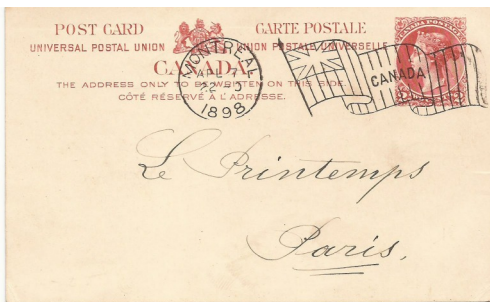 POST CARD CARTE POSTALE
UNIVERSAL POSTAL UNION UNION POSTALE UNIVERSELLE
CANADA
THE ADDRESS ONLY TO BE WRITTEN ON THIS SIDE.
CÔTÉ RÉSERVÉ A L'ADRESSE.
MONTREAL
1898
CANADA
Le Printemps
Paris.